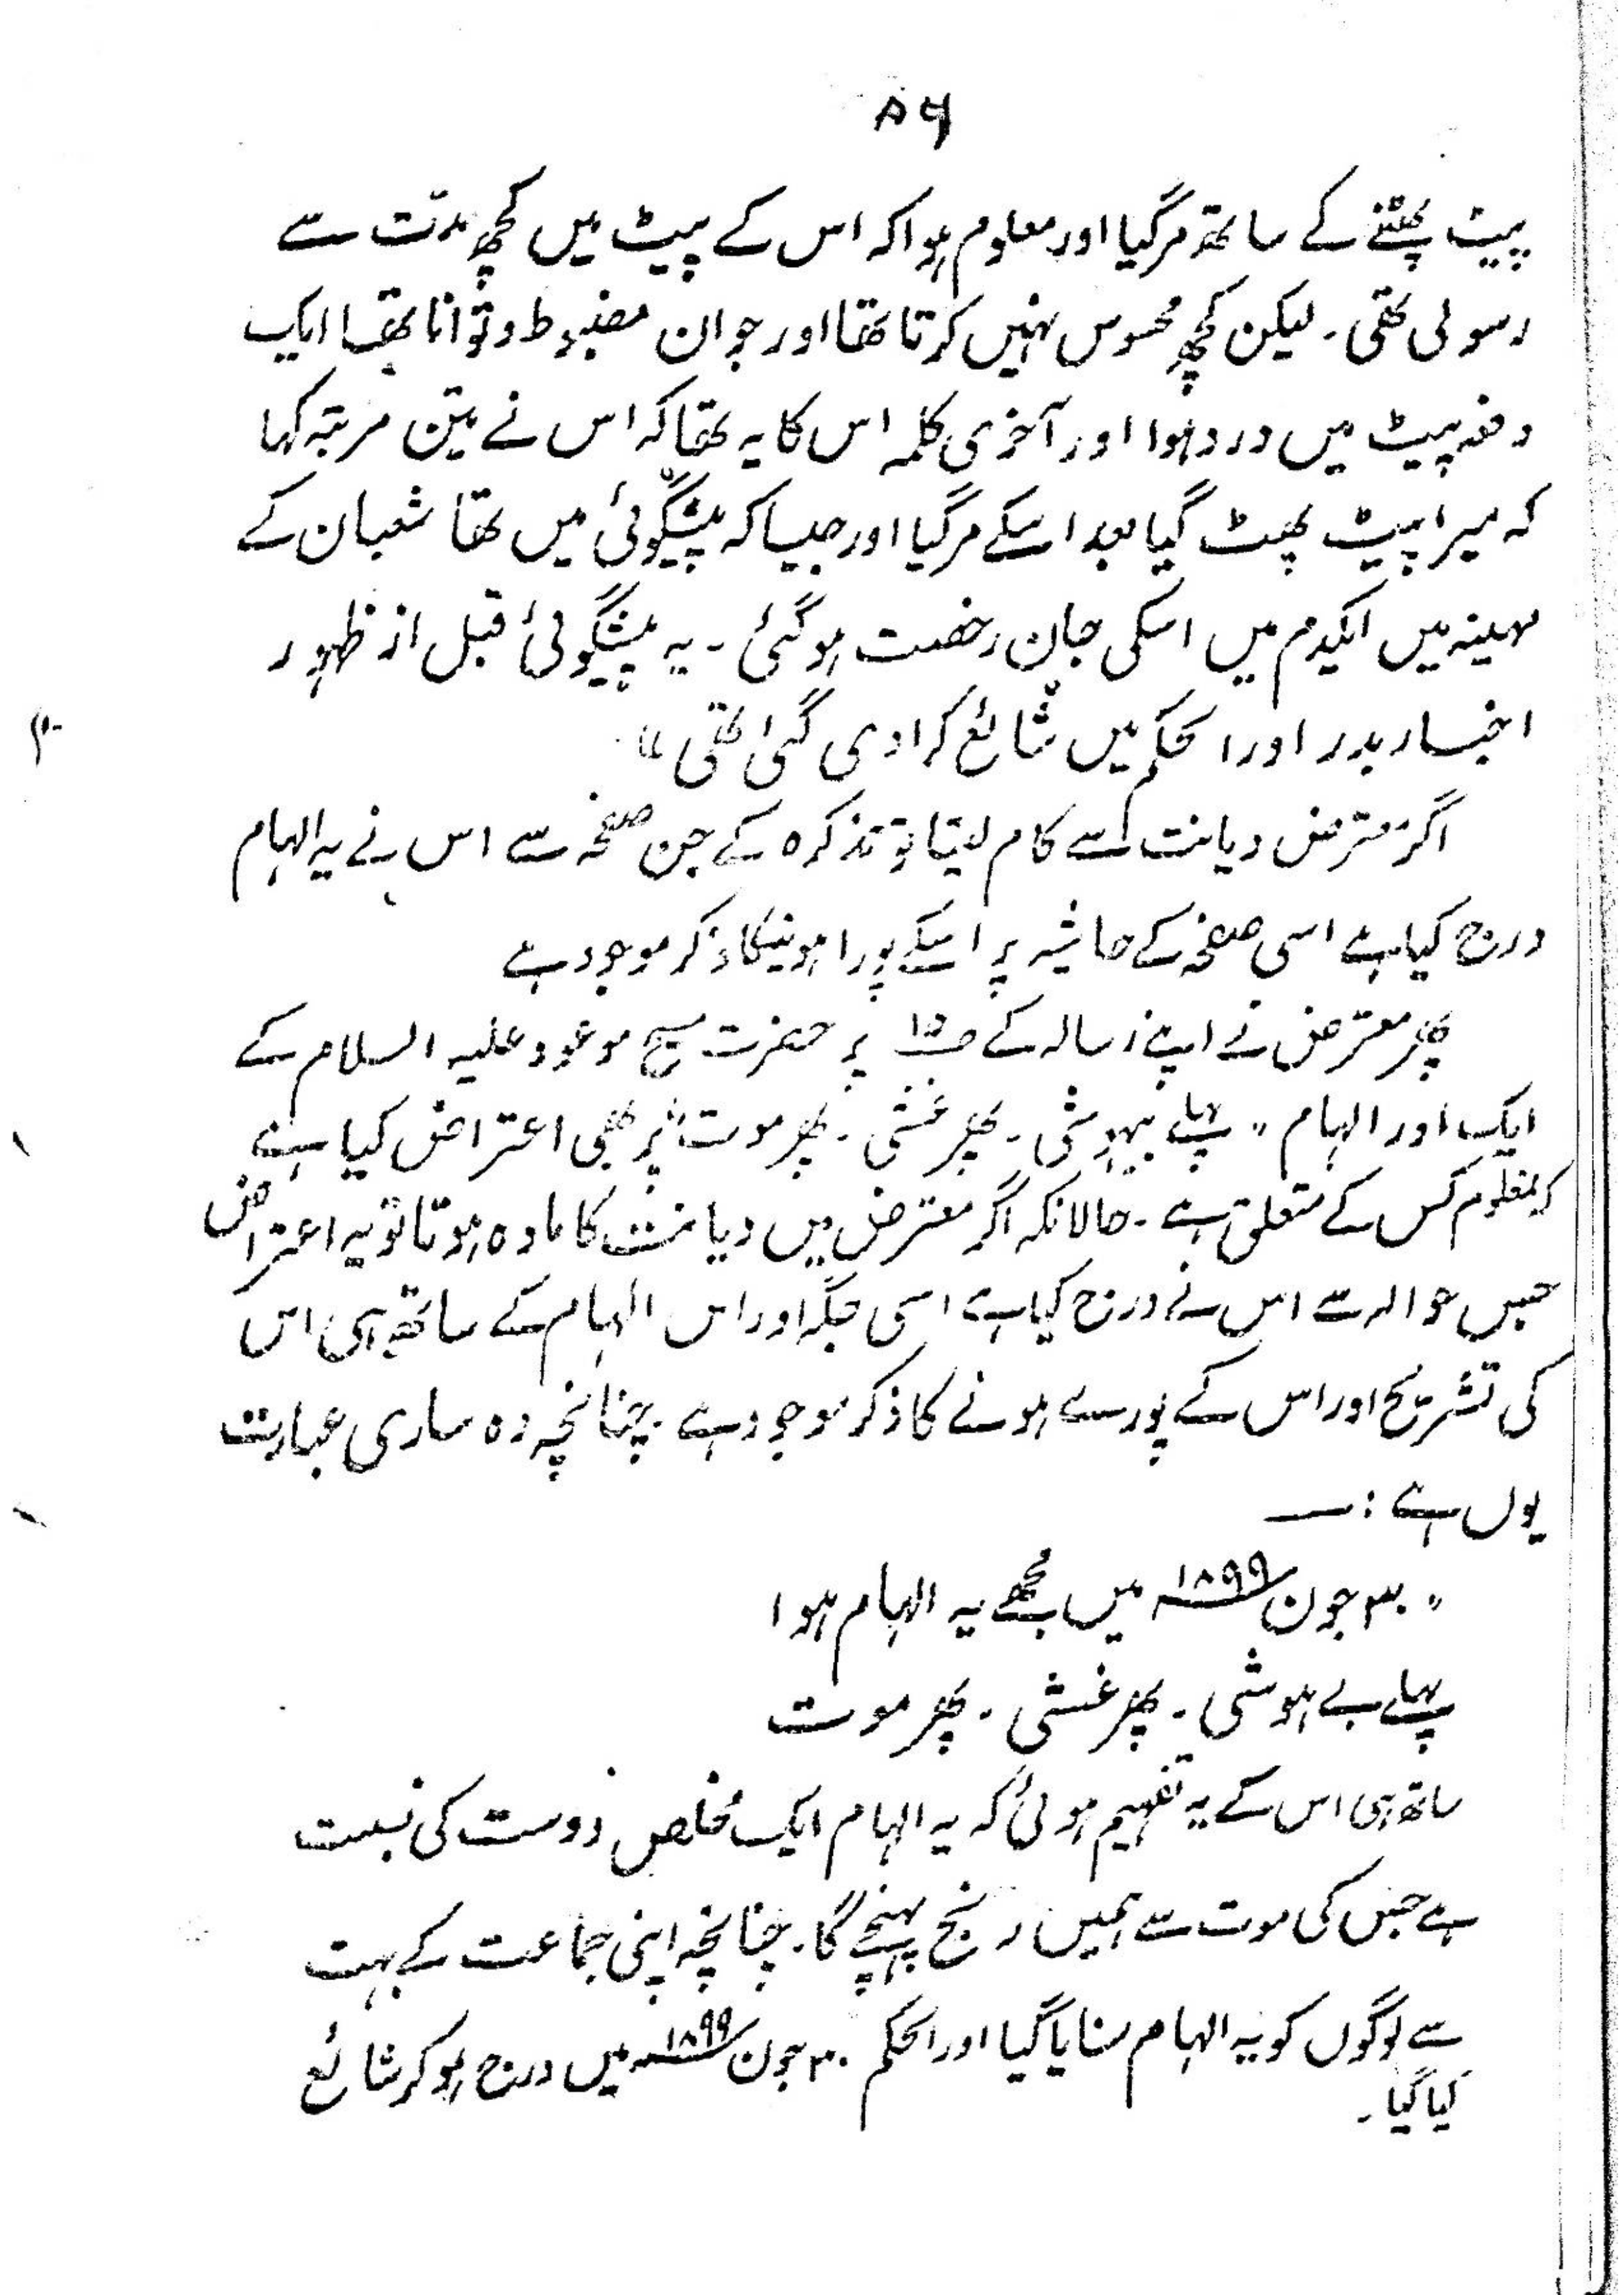 ۸۶
پیٹ پھٹنے کے ساتھ مرگیا اور معلوم ہوا کہ اس کے پیٹ میں کچھ مدّت سے
رسولی تھی۔ لیکن کچھ محسوس نہیں کرتا تھا اور جوان مضبوط و توانا تھا ایک
دفعہ پیٹ میں درد ہوا اور آخری کلمہ اس کا یہ تھا کہ اس نے تین مرتبہ کہا
کہ میرا پیٹ پھٹ گیا بعد اسکے مرگیا اور جیسا کہ پیشگوئی میں تھا شعبان کے
مہینہ میں ایکدم میں اسکی جان رخصت ہوگئی۔ یہ پیشگوئی قبل از ظہور
اخبار بدر اور الحکم میں شائع کرا دی گئی تھی"
اگر معترض دیانت سے کام لیتا تو تذکرہ کے جس صفحہ سے اس نے یہ الہام
درج کیا ہے اسی صفحہ کے حاشیہ پر اسکے پورا ہونیکا ذکر موجود ہے
پھر معترض نے اپنے رسالہ کے ص۱۵ پر حضرت مسیح موعود علیہ السلام کے
ایک اور الہام "پہلے بیہوشی۔ پھر غشی۔ پھر موت" پر بھی اعتراض کیا ہے
معلوم کس کے متعلق ہے۔ حالانکہ اگر معترض میں دیانت کا مادہ ہوتا تو یہ اعتراض
جس حوالہ سے اس نے درج کیا ہے اسی جگہ اور اس الہام کے ساتھ ہی اس
کی تشریح اور اس کے پورے ہونے کا ذکر موجود ہے۔ چنانچہ وہ ساری عبارت
یوں ہے :۔
"۳۰ جون ۱۸۹۹ء میں مجھے یہ الہام ہوا
پہلے بے ہوشی۔ پھر غشی۔ پھر موت
ساتھ ہی اس کے یہ تفہیم ہوئی کہ یہ الہام ایک مخلص دوست کی نسبت
ہے جس کی موت سے ہمیں رنج پہنچے گا۔ چنانچہ اپنی جماعت کے بہت
سے لوگوں کو یہ الہام سنایا گیا اور الحکم ۳۰ جون ۱۸۹۹ء میں درج ہو کر شائع
کیا گیا۔